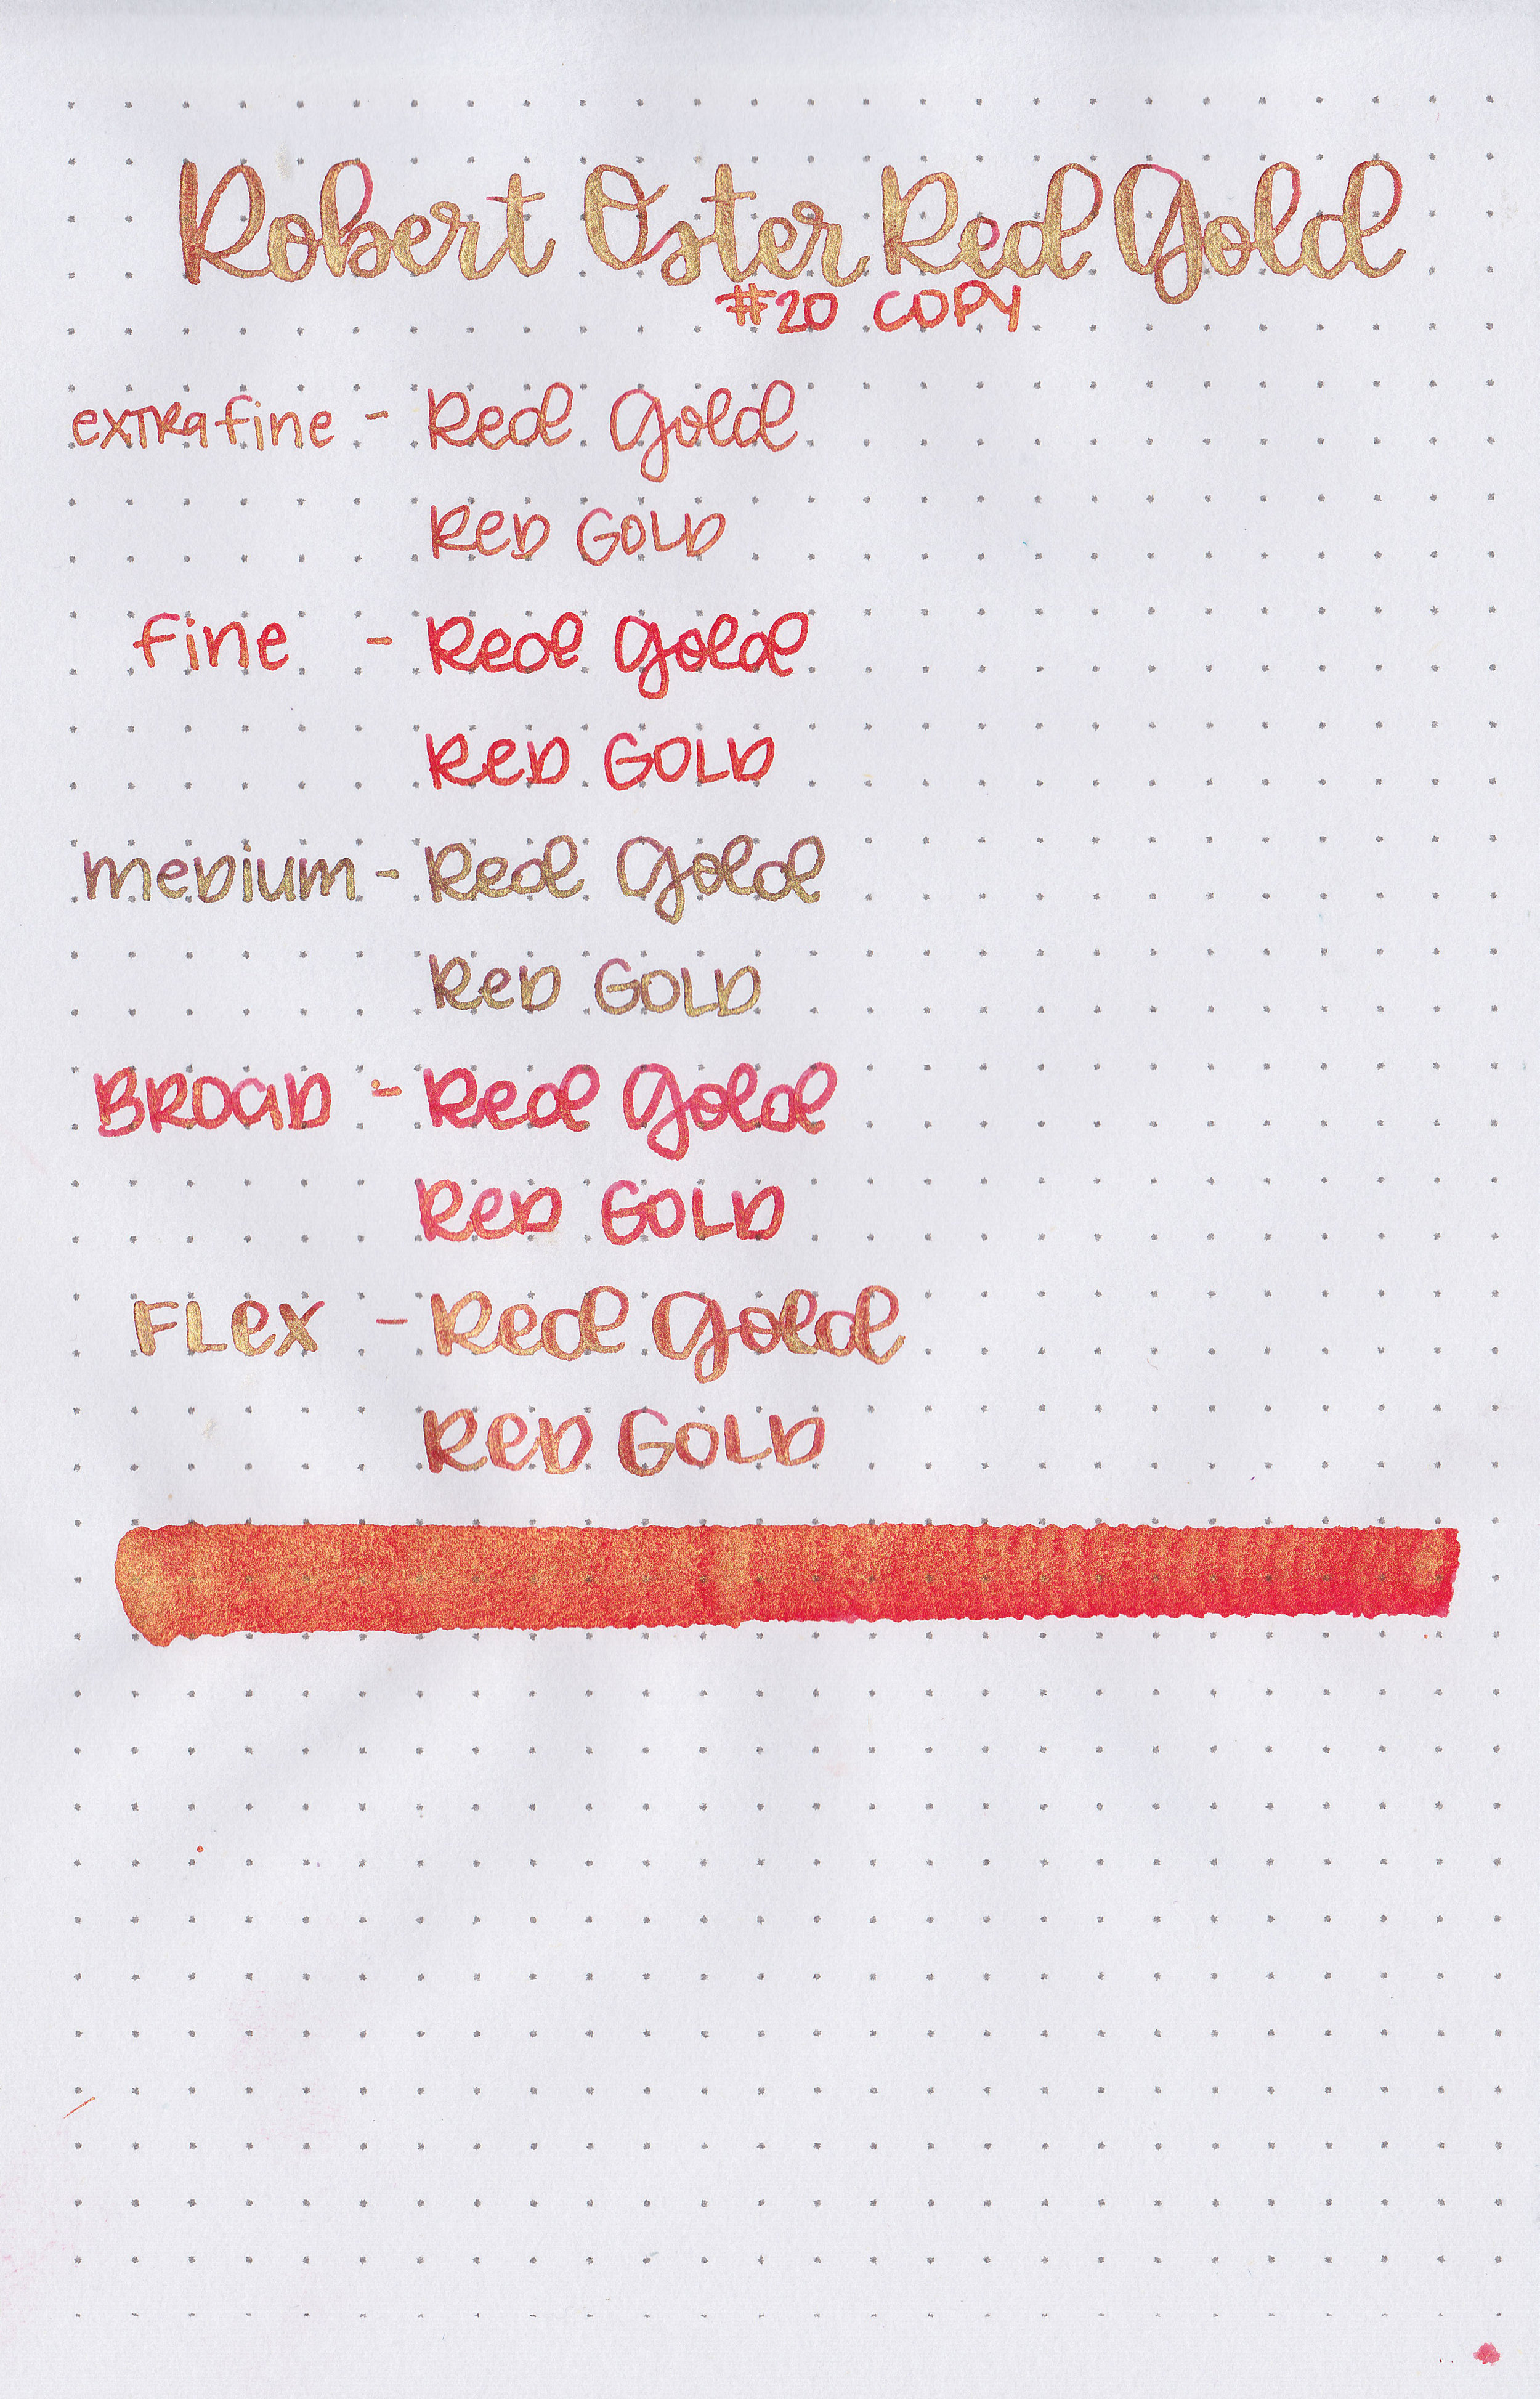 Robert Oster Red Gold
#20 COPY
extra fine - Red Gold
Red Gold
fine - Red Gold
Red Gold
medium - Red Gold
Red Gold
Broad - Red Gold
Red Gold
Flex - Red Gold
Red Gold